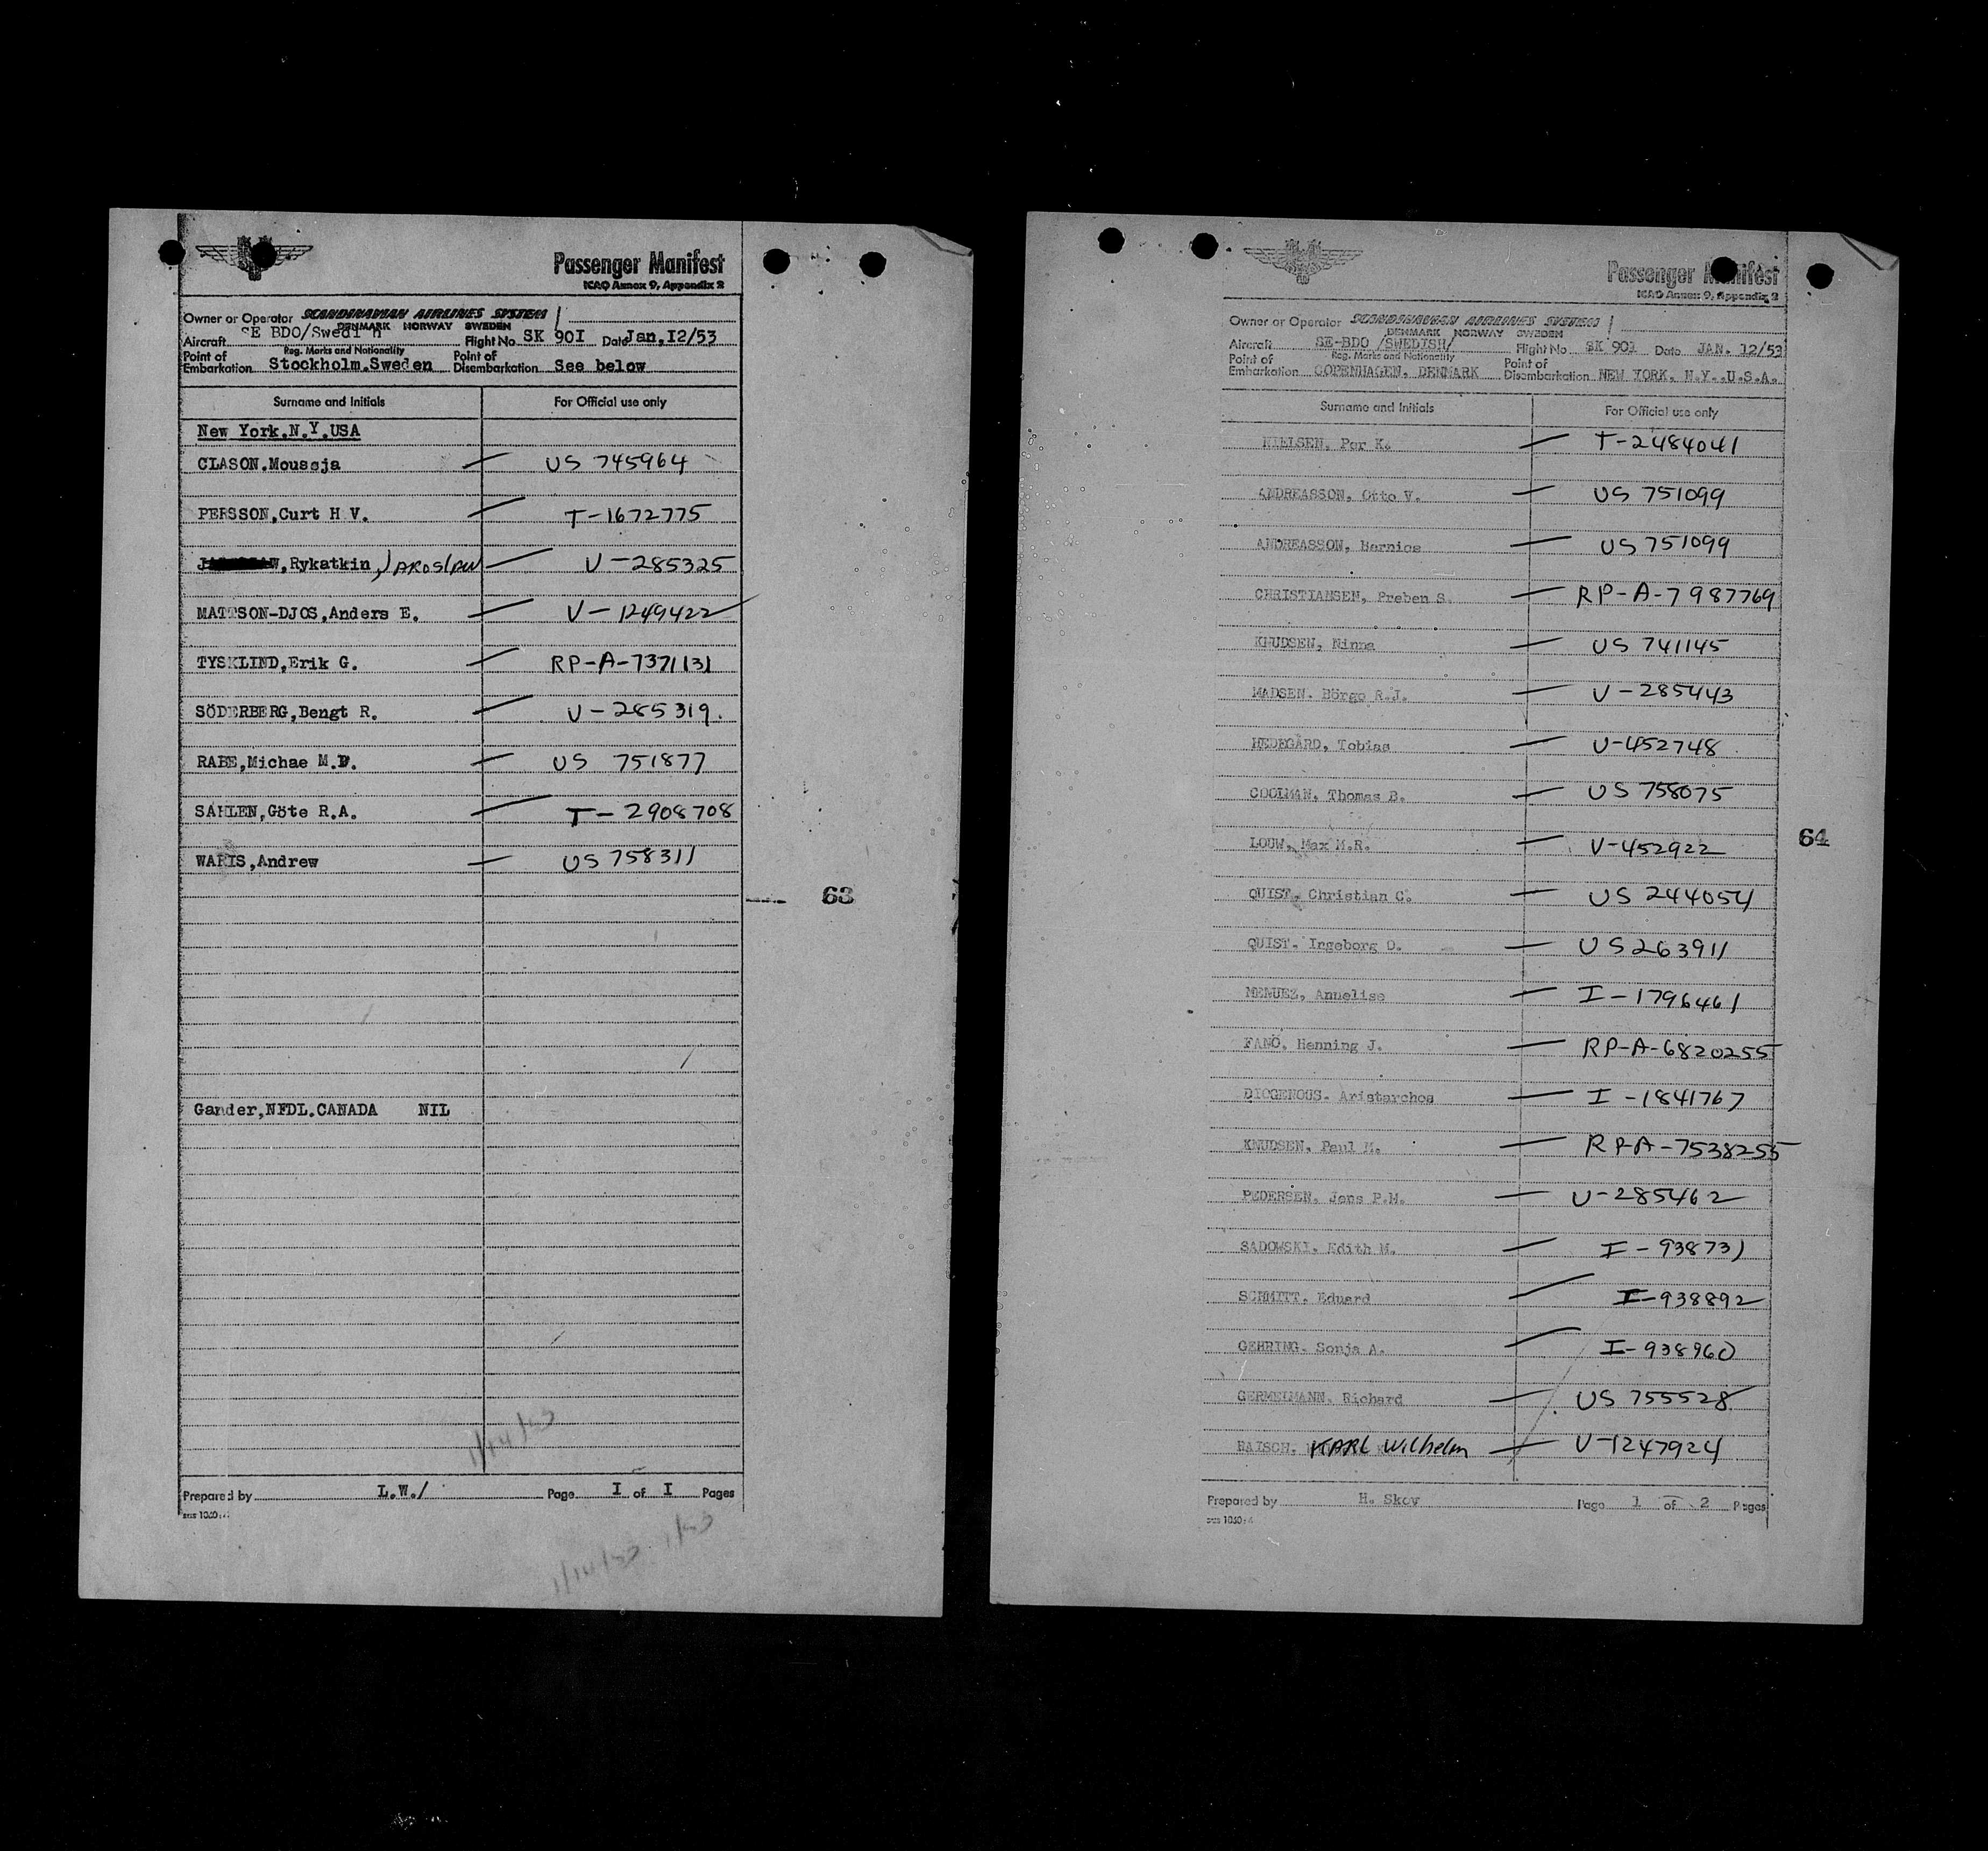 Passenger Manifest
ICAO Annex 9, Appendix 2
Owner or Operator SCANDINAVIAN AIRLINES SYSTEM
DENMARK NORWAY SWEDEN
Aircraft SE BDO/Swedi Flight No SK 90I Date Jan,I2/53
Reg. Marks and Nationality
Point of Embarkation Stockholm.Sweden Point of Disembarkation See below
Surname and Initials For Official use only
New York.N.Y.USA
CLASON.Moussja US 745964
PERSSON,Curt H V. T-1672775
,Rykatkin, JAROSLAW V-285325
MATTSON-DJOS,Anders E. V-1249422
TYSKLIND,Erik G. RP-A-7371131
SÖDERBERG,Bengt R. V-285319.
RABE,Michae M. US 751877
SAHLEN,Göte R.A. T-2908708
WARIS,Andrew US 758311
63
Gander,NFDL.CANADA NIL
1/14/53
Prepared by L.W./ Page I of I Pages
1/14/53 1/53
Passenger Manifest
ICAO Annex 9, Appendix 2
Owner or Operator SCANDINAVIAN AIRLINES SYSTEM
DENMARK NORWAY SWEDEN
Aircraft SE-BDO /SWEDISH/ Flight No SK 901 Date JAN. 12/53
Reg. Marks and Nationality
Point of Embarkation COPENHAGEN, DENMARK Point of Disembarkation NEW YORK, N.Y.,U.S.A.
Surname and Initials For Official use only
NIELSEN, Per K. T-2484041
ANDREASSON, Otto V. US 751099
ANDREASSON, Bernice US 751099
CHRISTIANSEN, Preben S. RP-A-7987769
KNUDSEN, Minna US 741145
MADSEN. Börge R.J. V-285443
HEDEGÅRD, Tobias V-452748
COOLMAN, Thomas B. US 758075
LOUW, Max M.R. V-452922
64
QUIST, Christian C. US 244054
QUIST. Ingeborg D. US 263911
MENUEZ, Annelise I-1796461
FANÖ, Henning J. RP-A-6820255
DIOGENOUS. Aristarchos I-1841767
KNUDSEN, Paul M. RP-A-7538255
PEDERSEN, Jens P.M. V-285462
SADOWSKI, Edith M. I-938731
SCHMITT, Eduard I-938892
GEHRING. Sonja A. I-938960
GERMELMANN, Richard US 755528
RAISCH, KARL Wilhelm V-1247924
Prepared by H. Skov Page 1 of 2 Pages